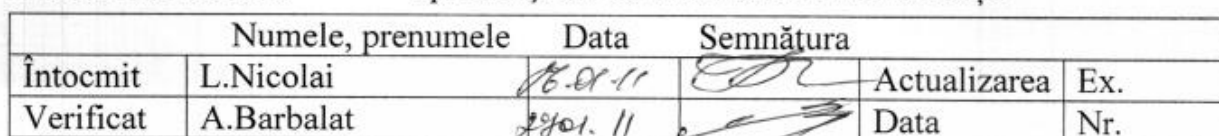 Numele, prenumele Data Semnătura
Întocmit L.Nicolai .01.11 Actualizarea Ex.
Verificat A.Barbalat 01. 11 Data Nr.